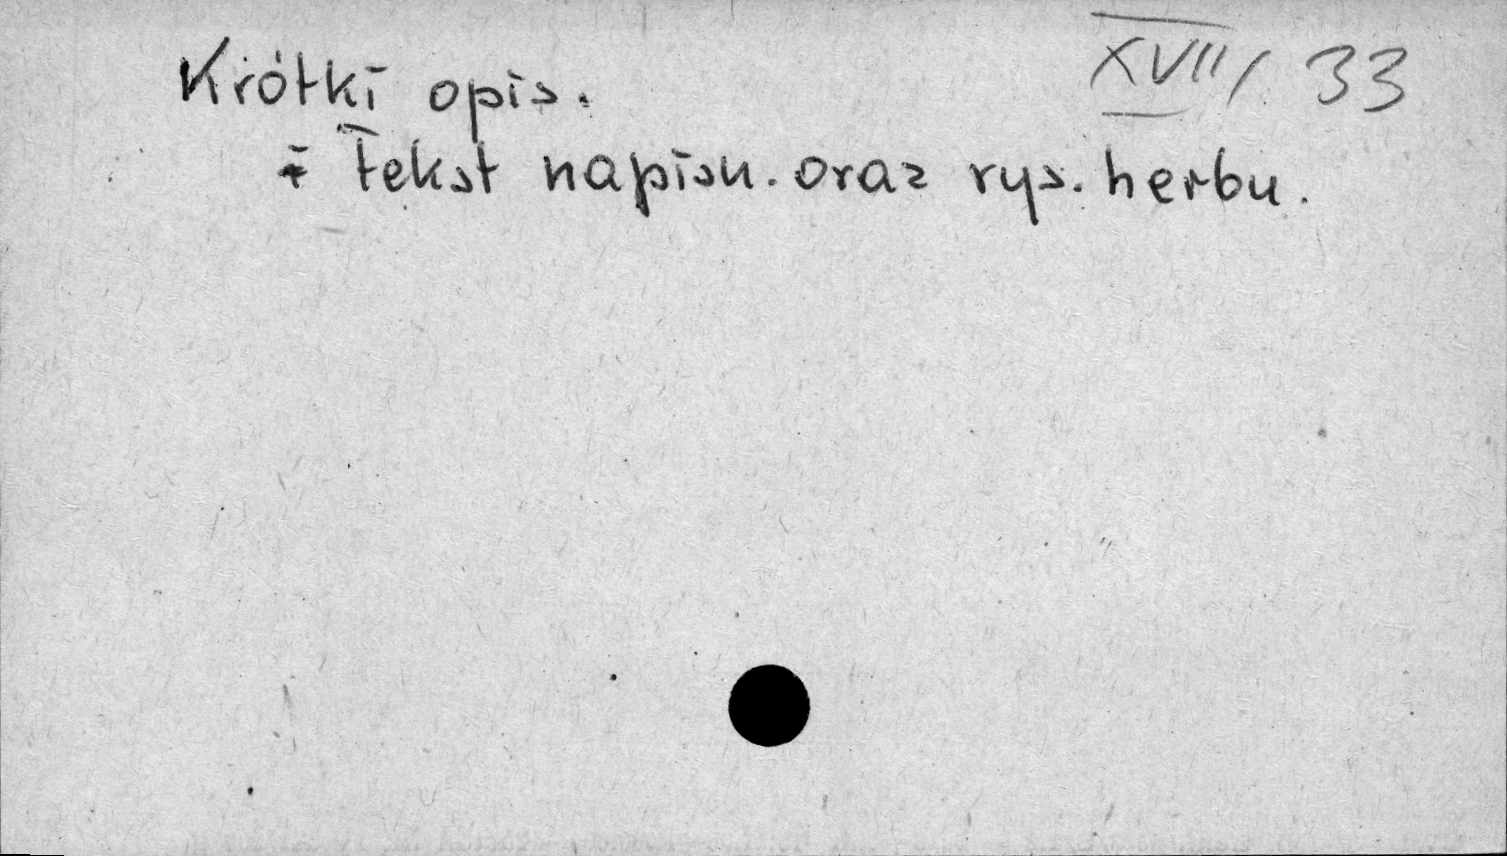 XVII/33
Krótki opis.
i tekst napisu. oraz rys. herbu.